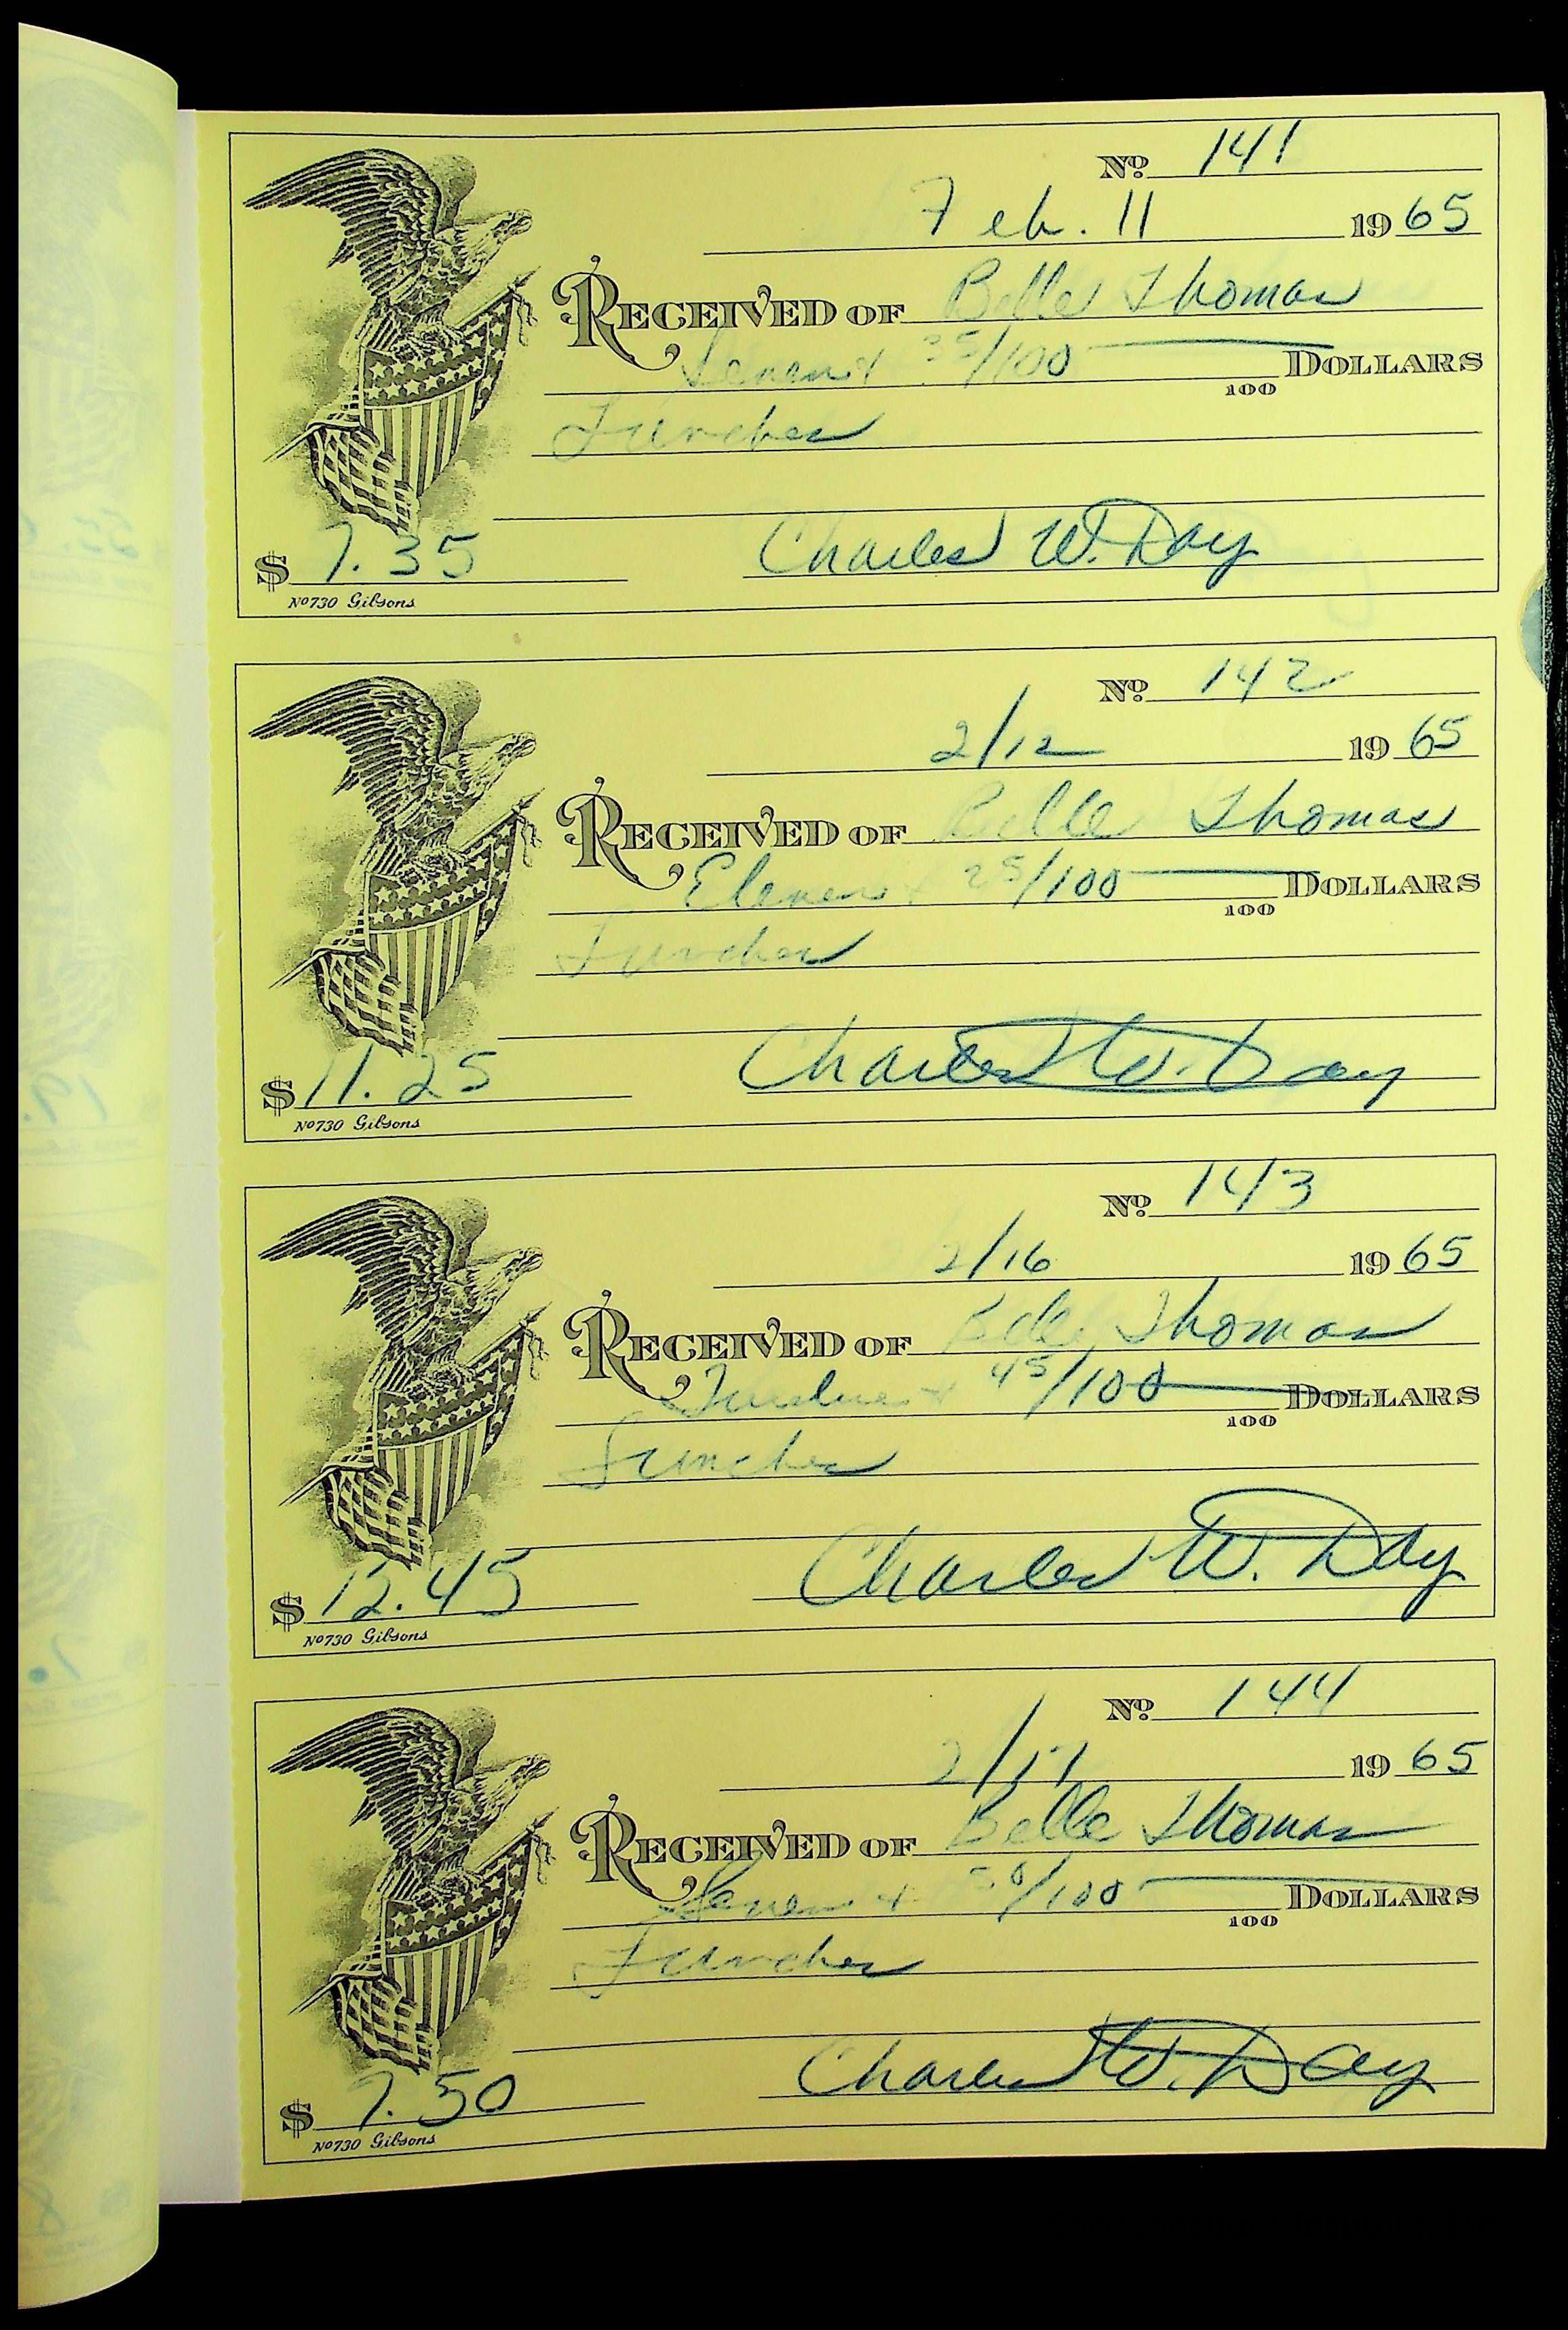 No. 141
Feb. 11 1965
RECEIVED OF Belle Thomas
Seven & 35/100 DOLLARS
100
Lunches
Charles W. Day
$ 7.35
No 730 Gibsons
No. 142
2/12 1965
RECEIVED OF Belle Thomas
Eleven & 25/100 DOLLARS
100
Lunches
Charles W. Day
$ 11.25
No 730 Gibsons
No. 143
2/16 1965
RECEIVED OF Belle Thomas
Twelve & 45/100 DOLLARS
100
Lunches
Charles W. Day
$ 12.45
No 730 Gibsons
No. 144
2/17 1965
RECEIVED OF Belle Thomas
Seven & 50/100 DOLLARS
100
Lunches
Charles W. Day
$ 7.50
No 730 Gibsons